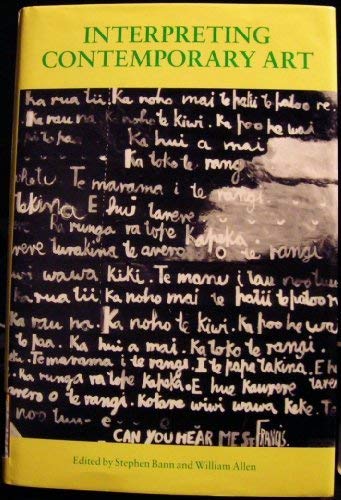 INTERPRETING
CONTEMPORARY ART
Ka rua tii. Ka noho mai te patii te patoo re.
Ka rau na. Ka noho te kiwi. Ka poo he wai
te paa. Ka hui a mai
Ka toko te rangi
Te marama i te rangi
tekina E hui tarere
Ka runga ra tofe kapeka
rere turakina te arero o te rangi
wiwi wawa kiki. Te manu i tau
Ka rua tii Ka noho mai te patii te patoo r
Ka rau na. Ka noho te kiwi. Ka poo he wa
to paa. Ka hui a mai. Ka toko te rangi.
Te marama i te rangi. I te pape takina. E h
Ka runga ra tofe kapeka. E hue kaurere tarere
arero o te rangi. Kotare wiwi wawa keke. Te
CAN YOU HEAR ME ST FRANCIS.
Edited by Stephen Bann and William Allen